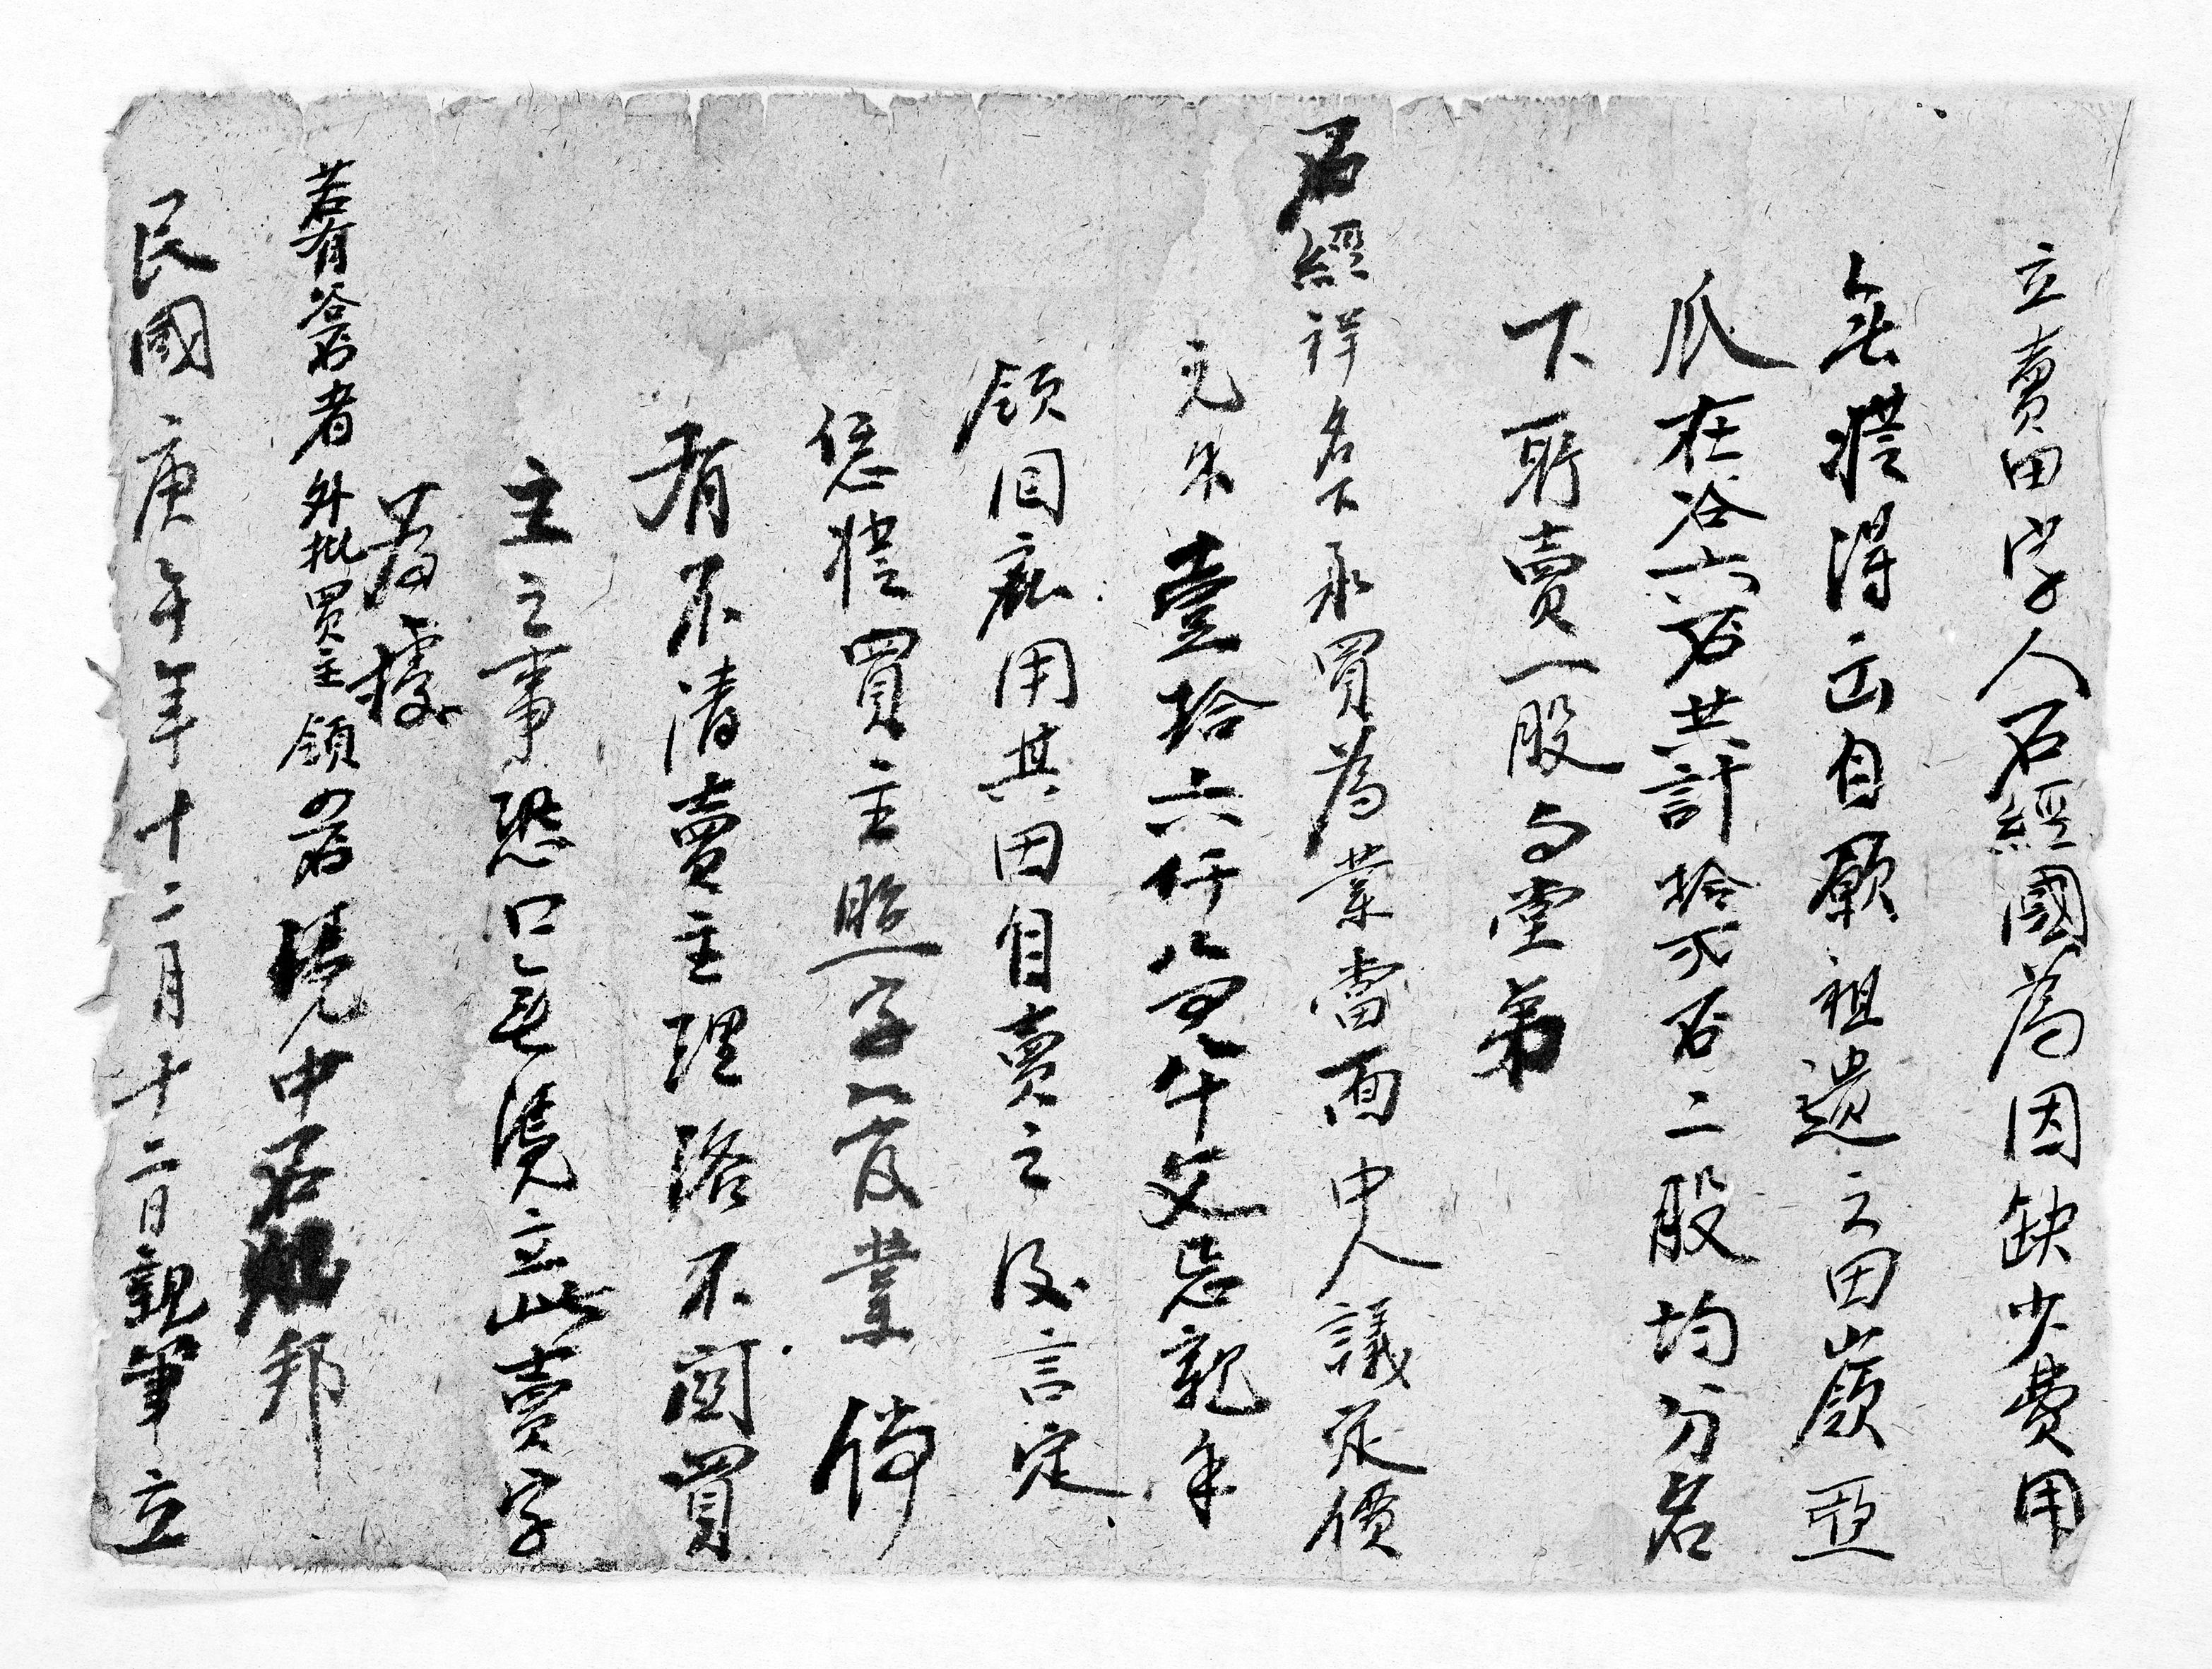 立賣田字人石經國為因缺少費用
無獲得出自願祖遺之田嶺亞
瓜在谷六石共計拾弍石二股均分名
下所賣一股与堂弟
石經祥名下承買為業當面中人議定價
元朱壹拾六仟八百八十文忘親手
領囬裱用其田自賣之後言定
憑買主照字管業倘
有不清賣主理洛不関買
主之事恐口無憑立此賣字
為據
若有谷石者外批買主領 憑中石邦
民國庚午年十二月十二日親筆立